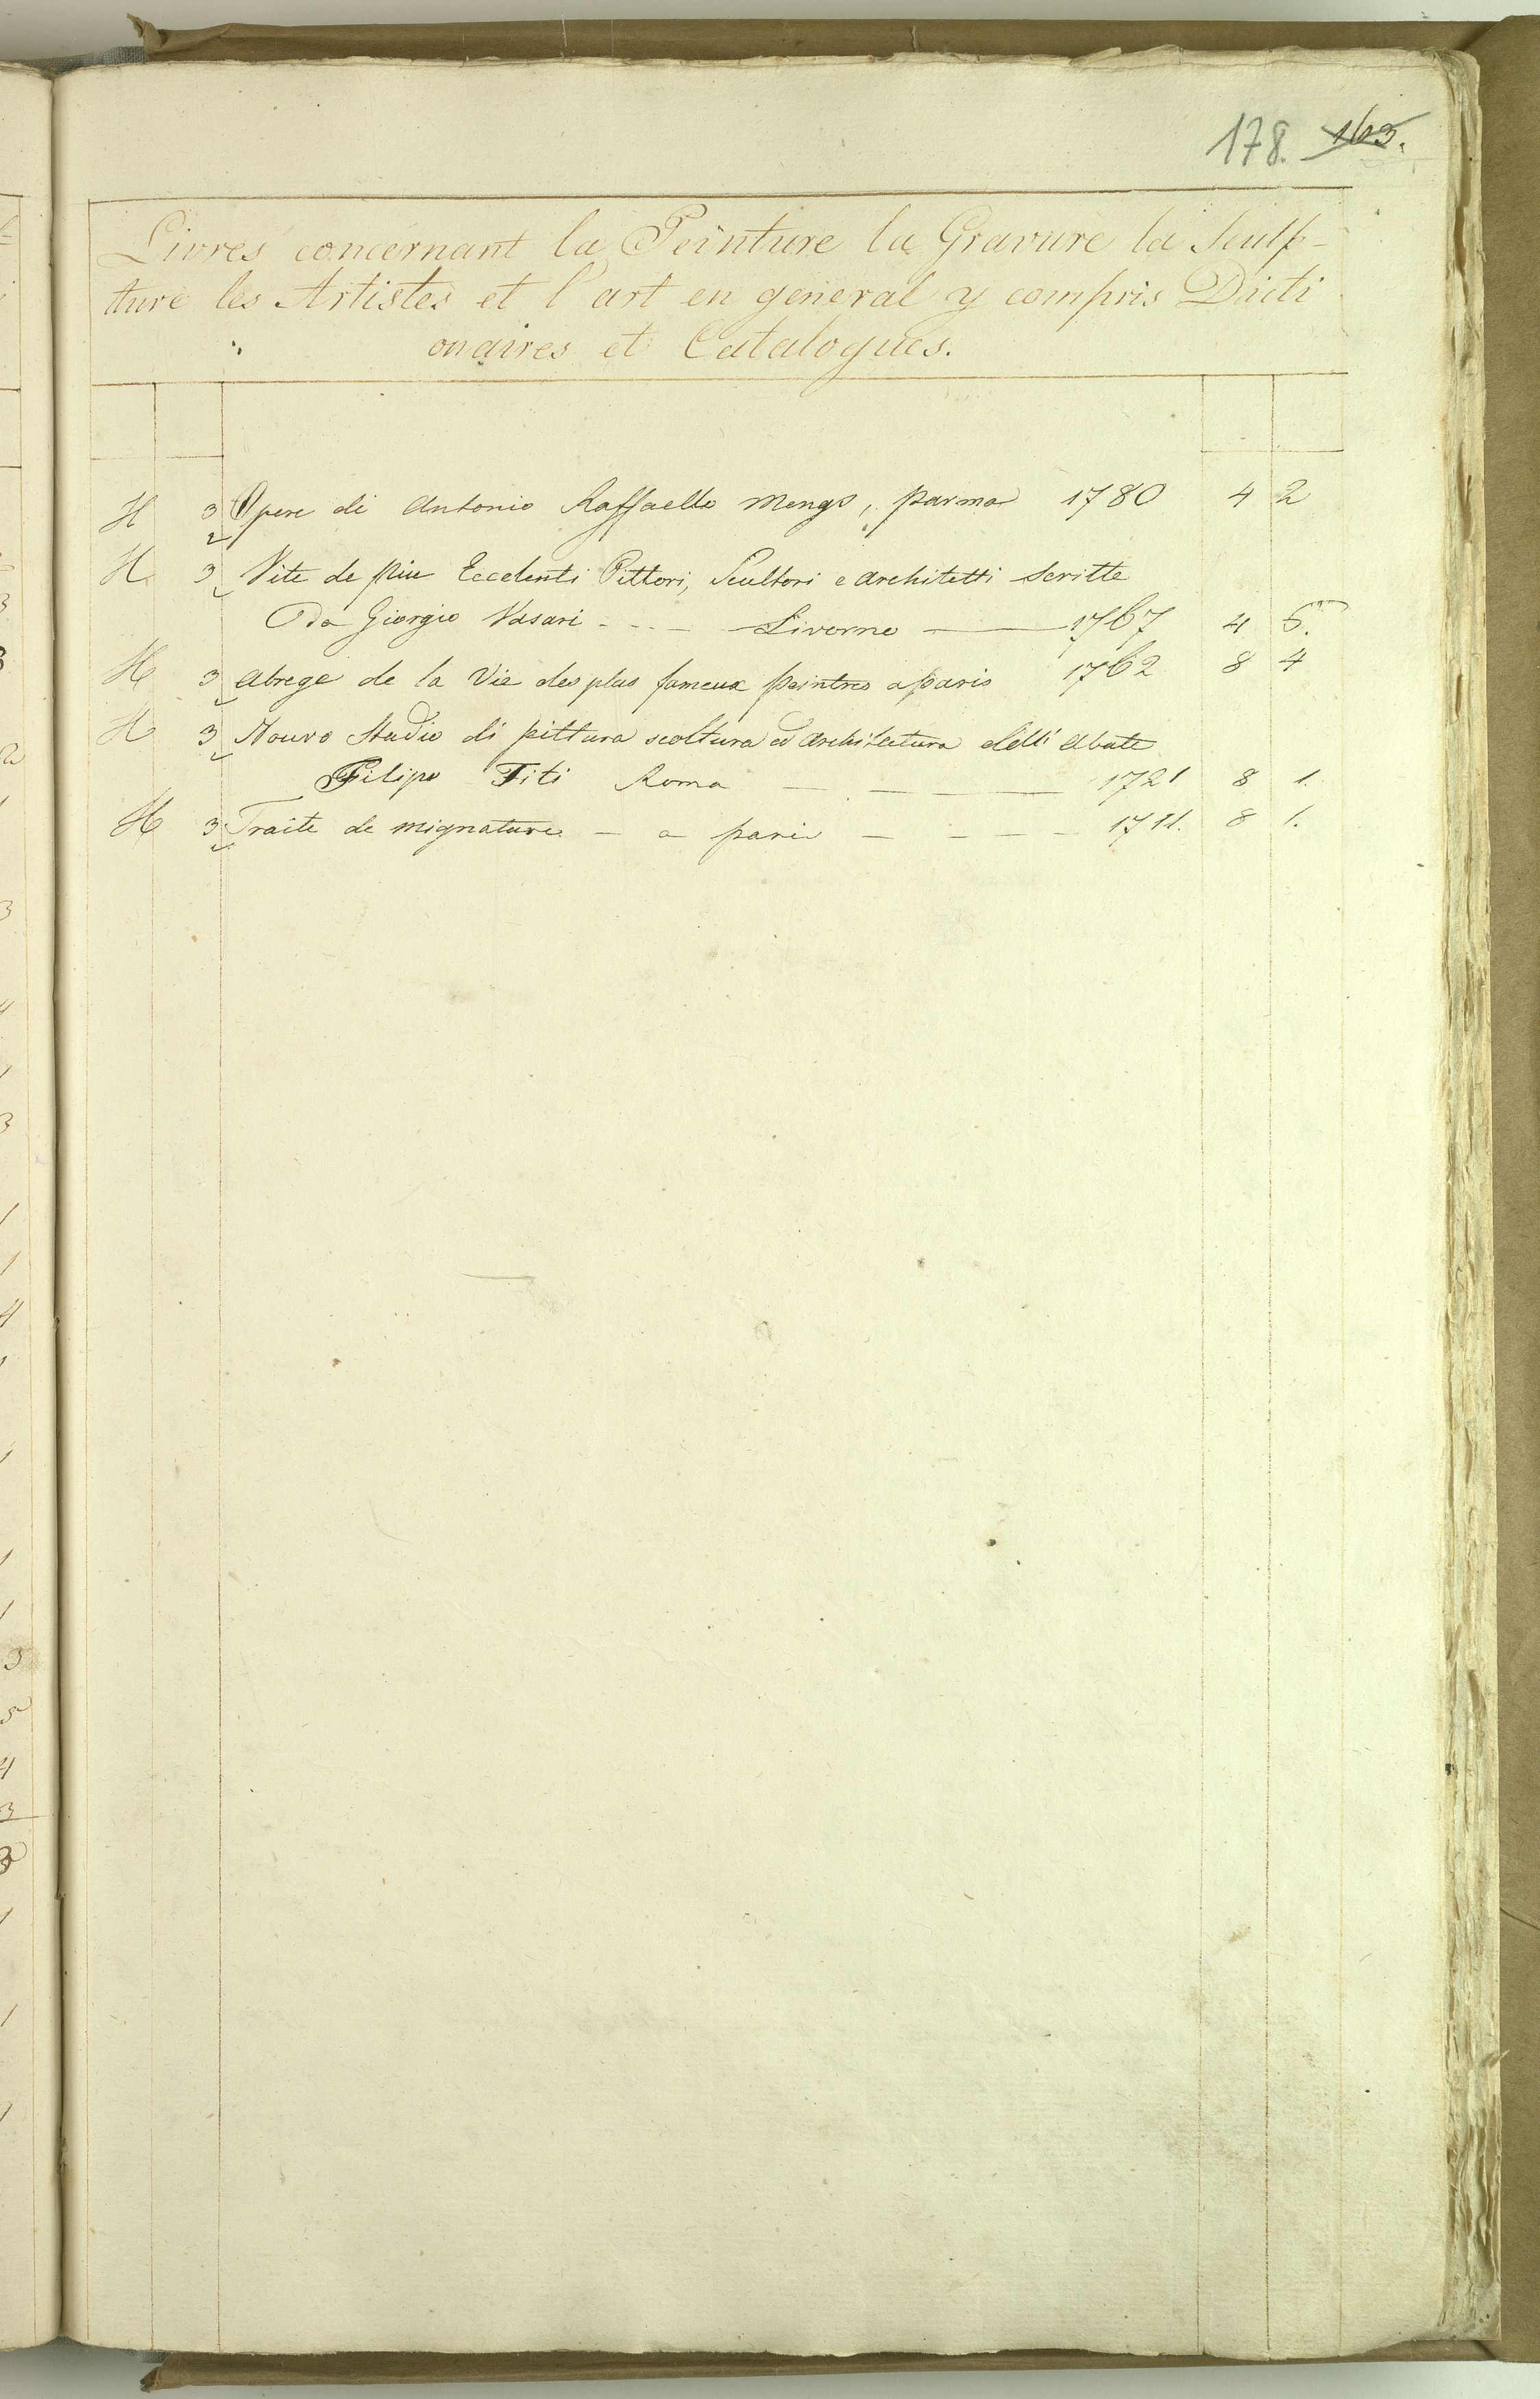 178. 163.
Livres concernant la Peinture la Gravure la Sculp-
ture les Artistes et l'art en general y compris Dicti
onaires et Catalogues.
H 3 Opere di Antonio Raffaello Mengs, parma 1780 4 2
H 3 Vite de piu Eccelenti Pittori, Scultori e architetti scritte
Da Giorgio Vasari - - - - Livorno — 1767 4 5.
H 3 abrege de la Vie des plus fameux peintres a paris 1762 8 4
H 3 Nouvo Studio di pittura scoltura ed architectura dell' abate
Filipo Titi Roma — — — 1721 8 1.
H 3 Traite de mignature — a paris — — — — 1711. 8 1.